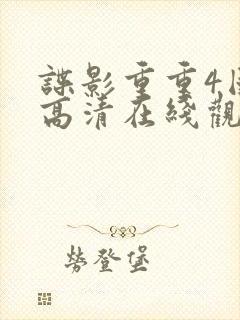 諜影重重4
高清在綫觀
勞登堡